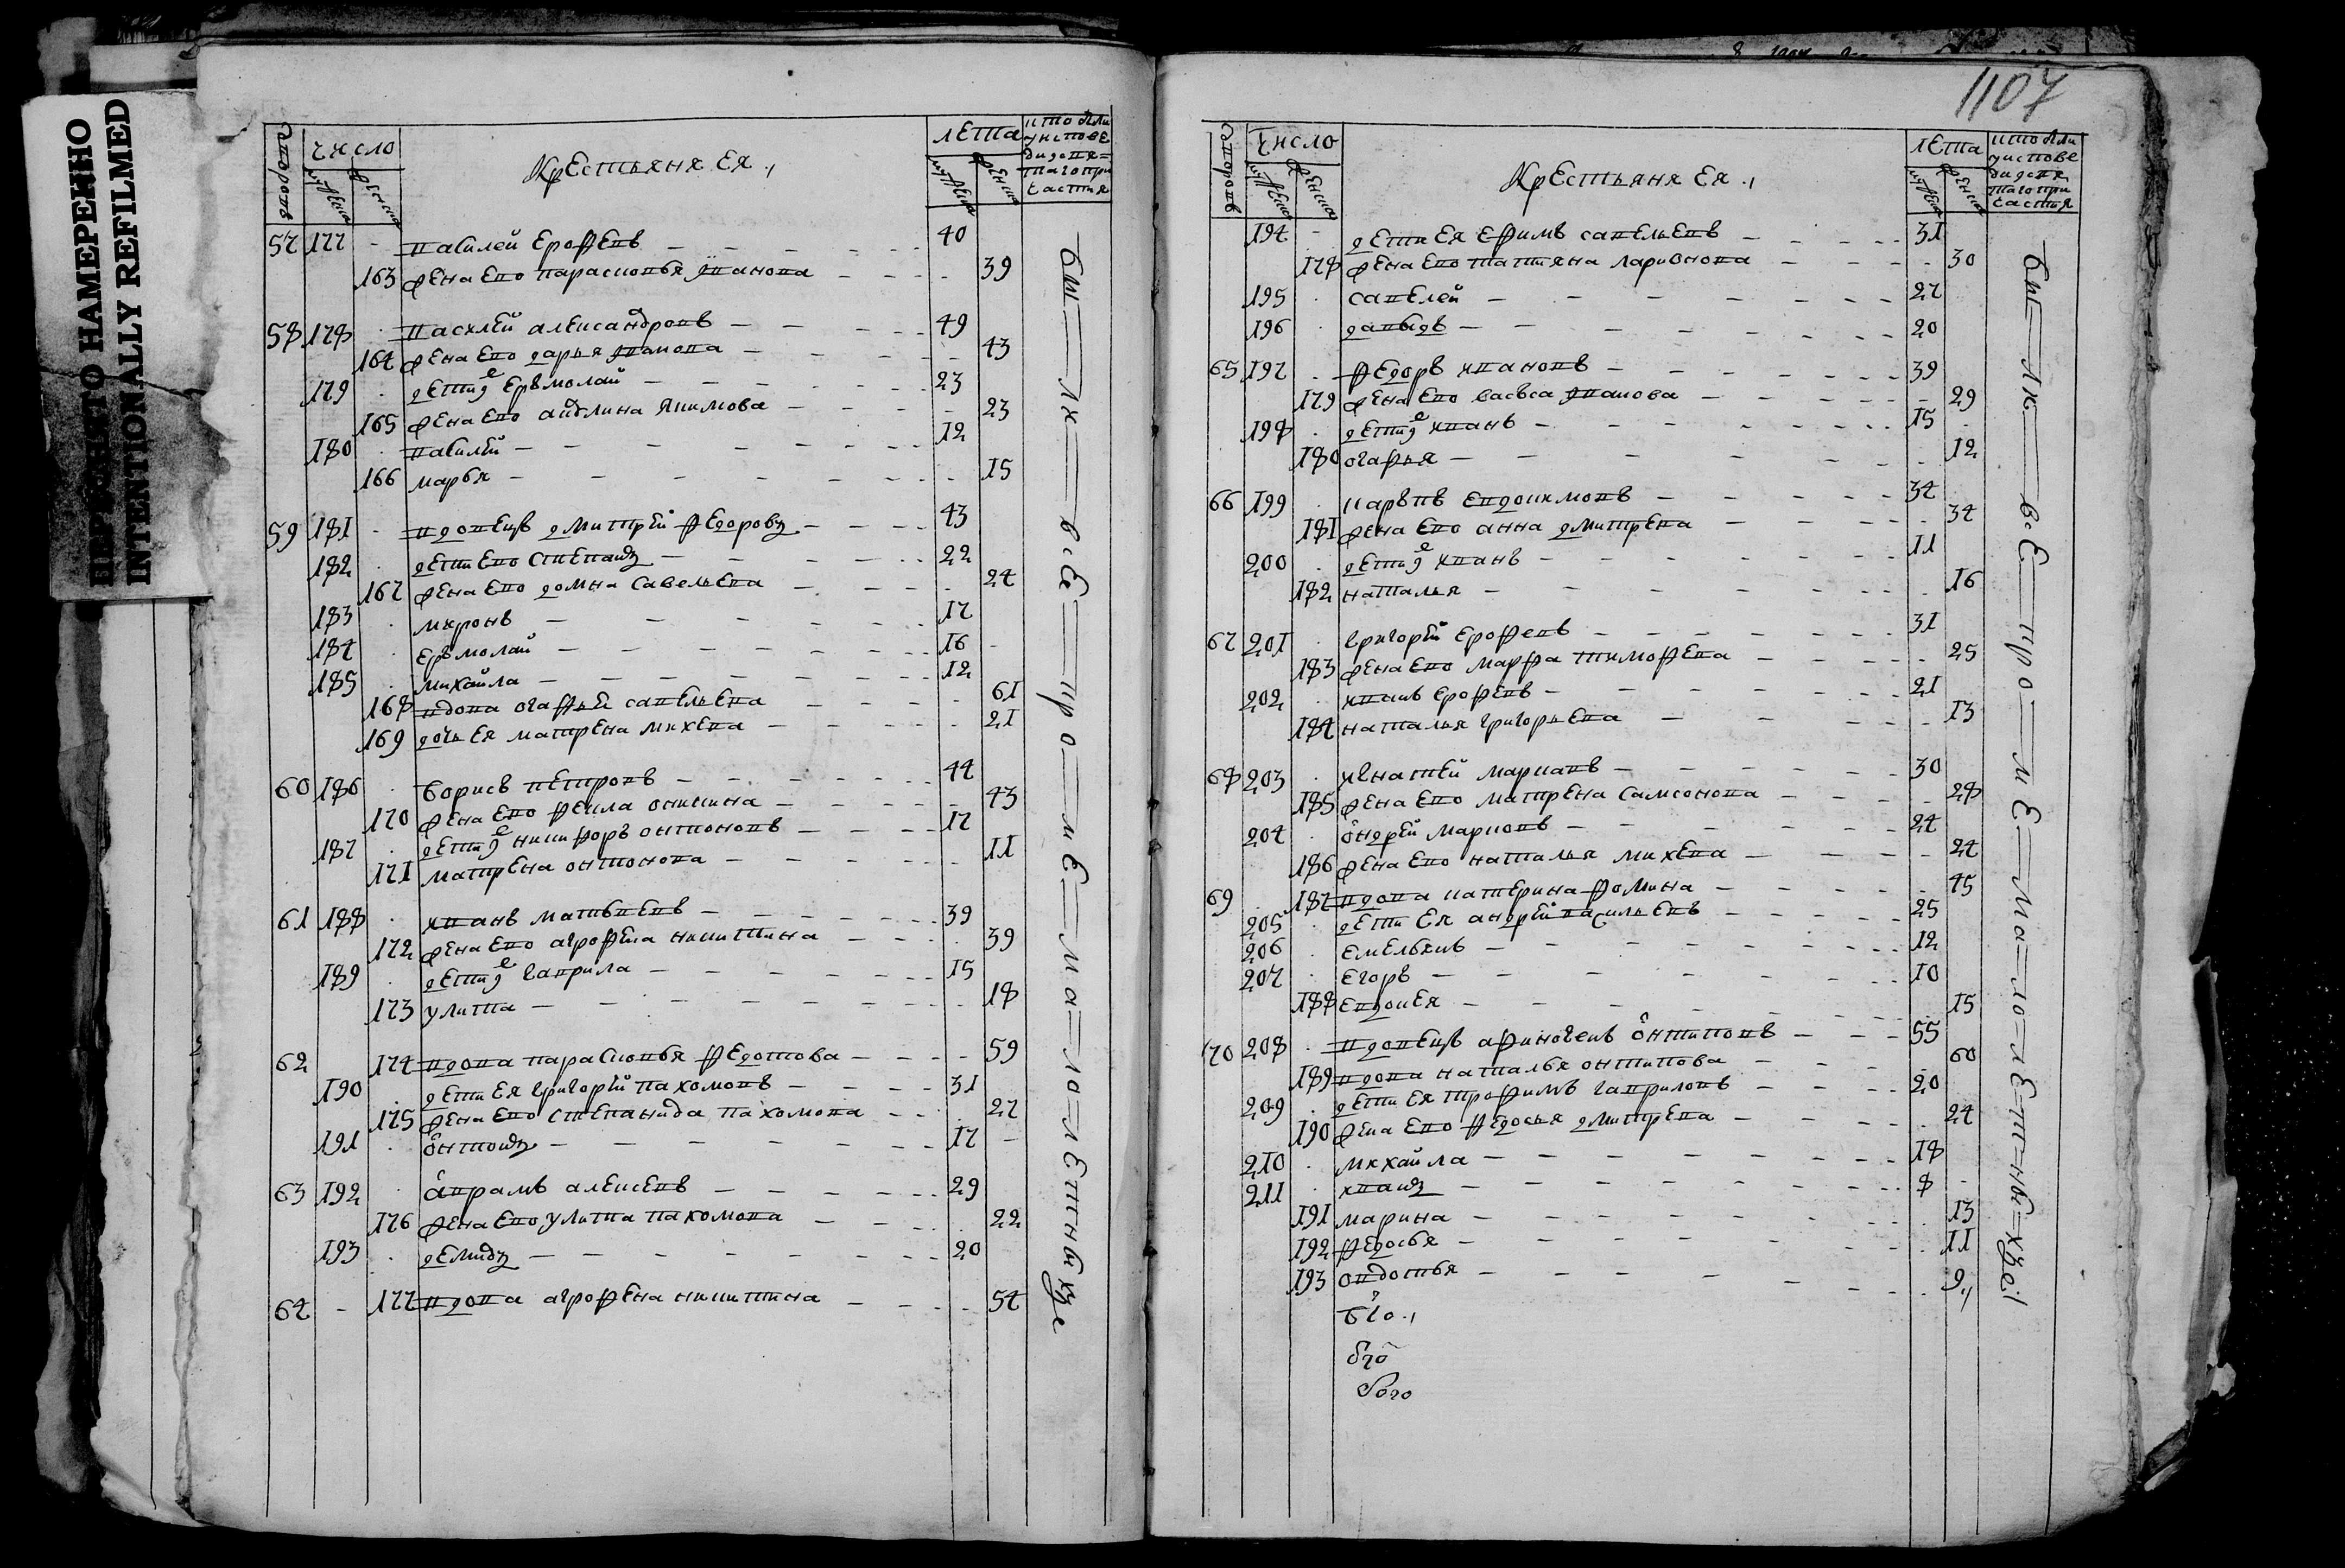 НЕРЕЗКО НАМЕРЕННО
INTENTIONALLY REFILMED
число
дворовъ
мужеска
женска
Крестьяня ея
лета
мужеска
женска
кто были у исповеди и святаго причастия
57 177 василей ерофеевъ 40
163 жена ево парасковья иванова 39
58 178 василей александровъ 49
164 жена ево дарья иванова 43
179 дети де ерьмолай 23
165 жена ево акулина якимова 23
180 василей 12
166 марья 15
59 181 вдовецъ дмитрей федоровъ 43
182 дети ево степанъ 22
167 жена ево домна савельева 24
183 миронъ 17
184 ерьмолай 16
185 михайла 12
168 вдова огафья савельева 61
169 дочь ея матрена михева 21
60 186 борисъ петровъ 44
170 жена ево фекла оникина 43
187 дети де никифоръ онтоновъ 17
171 матрена онтонова 11
61 188 иванъ матвеевъ 39
172 жена ево агрофена никитина 39
189 дети де гаврила 15
173 улита 18
62 174 вдова парасковья федотова 59
190 дети ея григорей пахомовъ 31
175 жена ево степанида пахомова 27
191 онтонъ 17
63 192 аврамъ алексеевъ 29
176 жена ево улита пахомова 22
193 демидъ 20
64 177 вдова агрофена никитина 54
Были все кроме малолетныхъ
1107
число
дворовъ
мужеска
женска
Крестьяня ея
лета
мужеска
женска
кто были у исповеди и святаго причастья
194 дети ея ефимъ савельевъ 31
178 жена ево татияна ларивонова 30
195 савелей 27
196 давыдъ 20
65 197 федоръ ивановъ 39
179 жена ево васьса иванова 29
198 дети де иванъ 15
180 огафья 12
66 199 карьпъ евдокимовъ 34
181 жена ево анна дмитрева 34
200 дети де иванъ 11
182 наталья 16
67 201 григорей ерофеевъ 31
183 жена ево марфа тимофева 25
202 иванъ ерофеевъ 21
184 наталья григорьева 13
68 203 игнатей марковъ 30
185 жена ево матрена самсонова 28
204 ондрей марковъ 24
186 жена ево наталья михева 24
69 187 вдова катерина фомина 45
205 дети ея андрей васильевъ 25
206 емельянъ 12
207 егоръ 10
188 евдокея 15
70 208 вдовецъ афиногенъ онтиповъ 55
189 вдова наталья онтипова 60
209 дети ея трофимъ гавриловъ 20
190 жена ево федосья дмитрева 24
210 михайла 18
211 иванъ 8
191 марина 13
192 федосья 11
193 овдотья 9
Были все кроме малолетныхъ